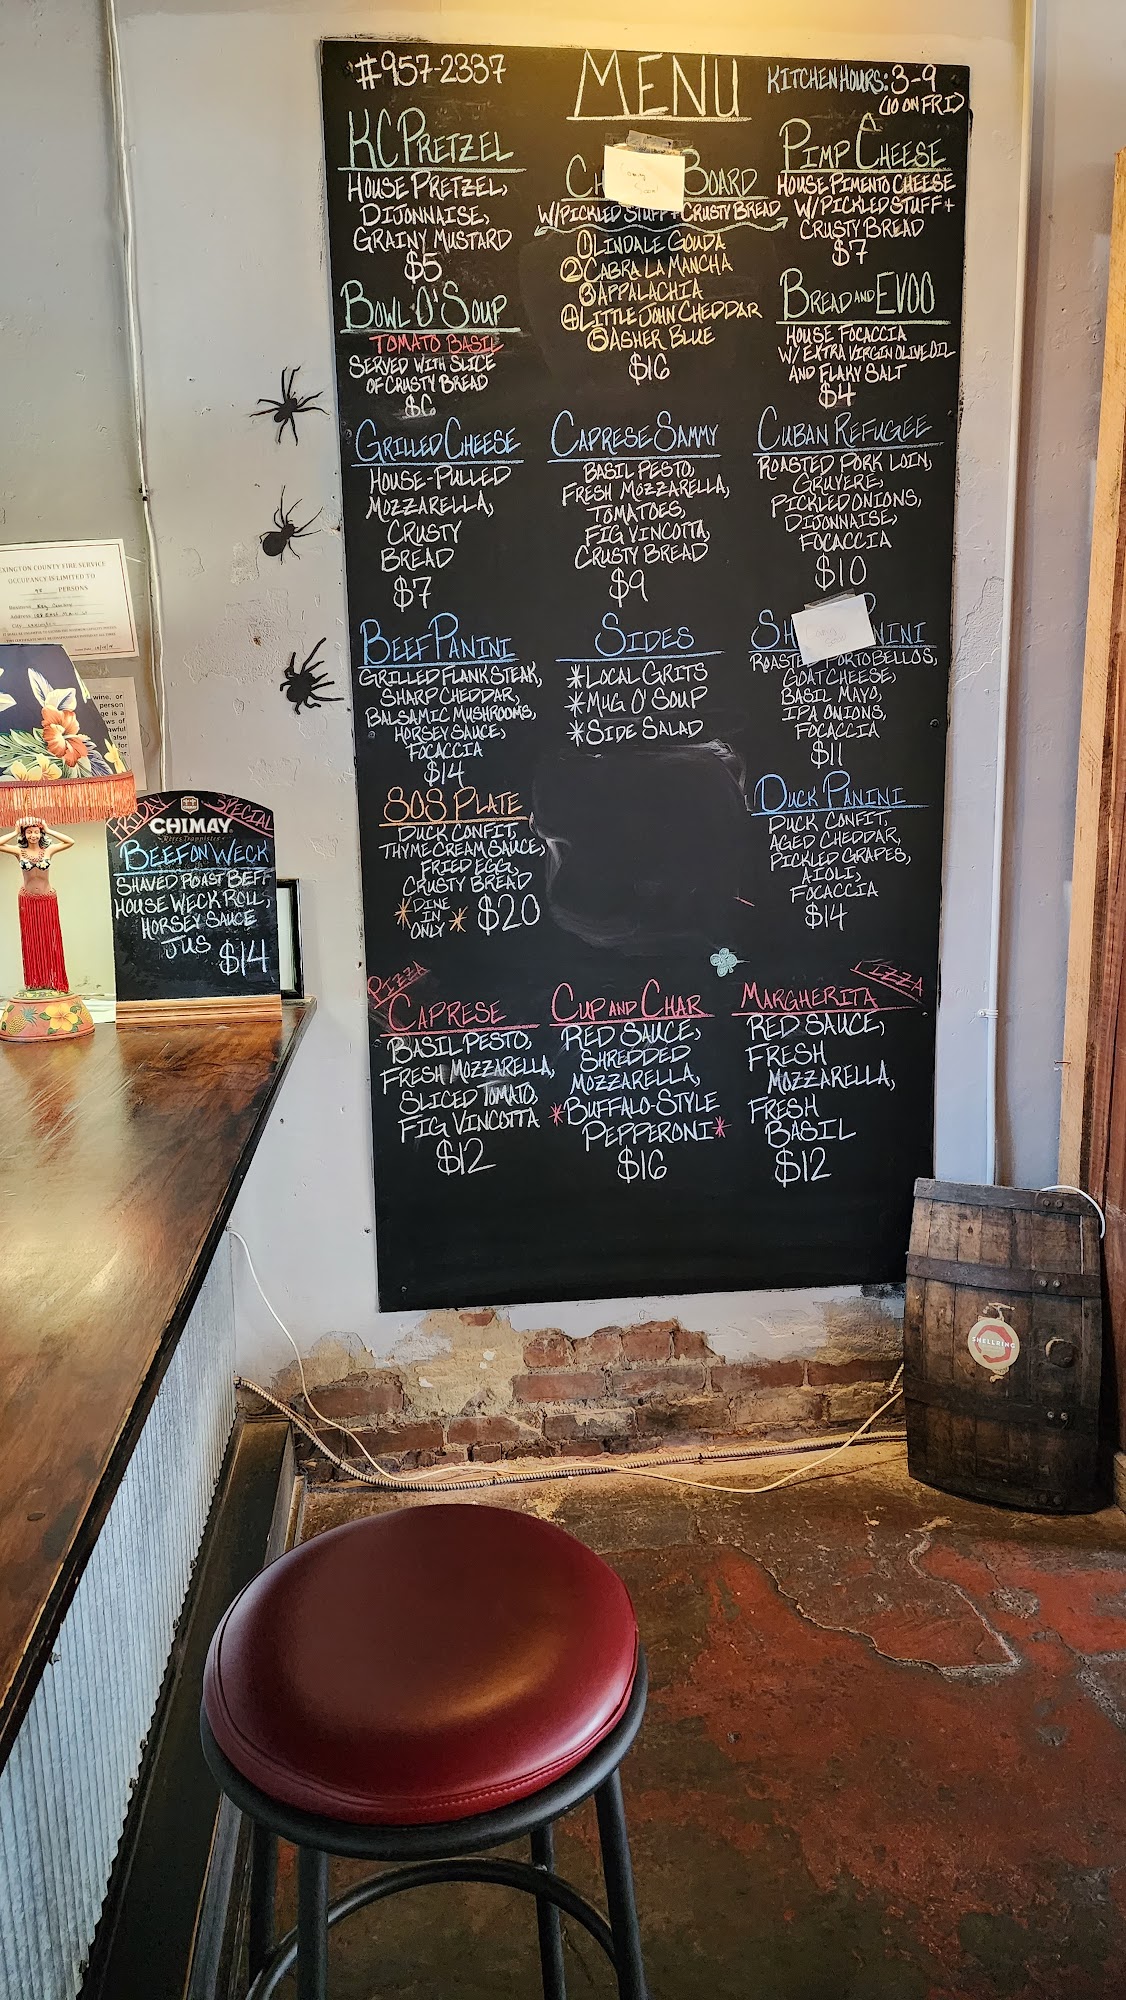 #957-2337
MENU
KITCHEN HOURS: 3-9
(10 ON FRI)
KC PRETZEL
HOUSE PRETZEL,
DIJONNAISE,
GRAINY MUSTARD
$5
BOARD
W/PICKLED STUFF + CRUSTY BREAD
① LINDALE GOUDA
② CABRA LA MANCHA
③ APPALACHIA
④ LITTLE JOHN CHEDDAR
⑤ ASHER BLUE
$16
PIMP CHEESE
HOUSE PIMENTO CHEESE
W/PICKLED STUFF +
CRUSTY BREAD
$7
BOWL O' SOUP
TOMATO BASIL
SERVED WITH SLICE
OF CRUSTY BREAD
$6
BREAD AND EVOO
HOUSE FOCACCIA
W/ EXTRA VIRGIN OLIVE OIL
AND FLAKY SALT
$4
GRILLED CHEESE
HOUSE-PULLED
MOZZARELLA,
CRUSTY
BREAD
$7
CAPRESE SAMMY
BASIL PESTO,
FRESH MOZZARELLA,
TOMATOES,
FIG VINCOTTA,
CRUSTY BREAD
$9
CUBAN REFUGEE
ROASTED PORK LOIN,
GRUYERE,
PICKLED ONIONS,
DIJONNAISE,
FOCACCIA
$10
BEEF PANINI
GRILLED FLANK STEAK,
SHARP CHEDDAR,
BALSAMIC MUSHROOMS,
HORSEY SAUCE,
FOCACCIA
$14
SIDES
*LOCAL GRITS
*MUG O' SOUP
*SIDE SALAD
ROASTED PORTOBELLOS,
GOAT CHEESE,
BASIL MAYO,
IPA ONIONS,
FOCACCIA
$11
SOS PLATE
DUCK CONFIT,
THYME CREAM SAUCE,
FRIED EGG,
CRUSTY BREAD
*DINE
IN
ONLY* $20
DUCK PANINI
DUCK CONFIT,
AGED CHEDDAR,
PICKLED GRAPES,
AIOLI,
FOCACCIA
$14
PIZZA
CAPRESE
BASIL PESTO,
FRESH MOZZARELLA,
SLICED TOMATO,
FIG VINCOTTA
$12
CUP AND CHAR
RED SAUCE,
SHREDDED
MOZZARELLA,
*BUFFALO-STYLE
PEPPERONI*
$16
PIZZA
MARGHERITA
RED SAUCE,
FRESH
MOZZARELLA,
FRESH
BASIL
$12
FRIDAY SPECIAL
CHIMAY
BEEF ON WECK
SHAVED ROAST BEEF
HOUSE WECK ROLL,
HORSEY SAUCE
JUS $14
XINGTON COUNTY FIRE SERVICE
OCCUPANCY IS LIMITED TO
PERSONS
wine, or
person
ge is a
ws of
awful
alse
for
SHELLRING